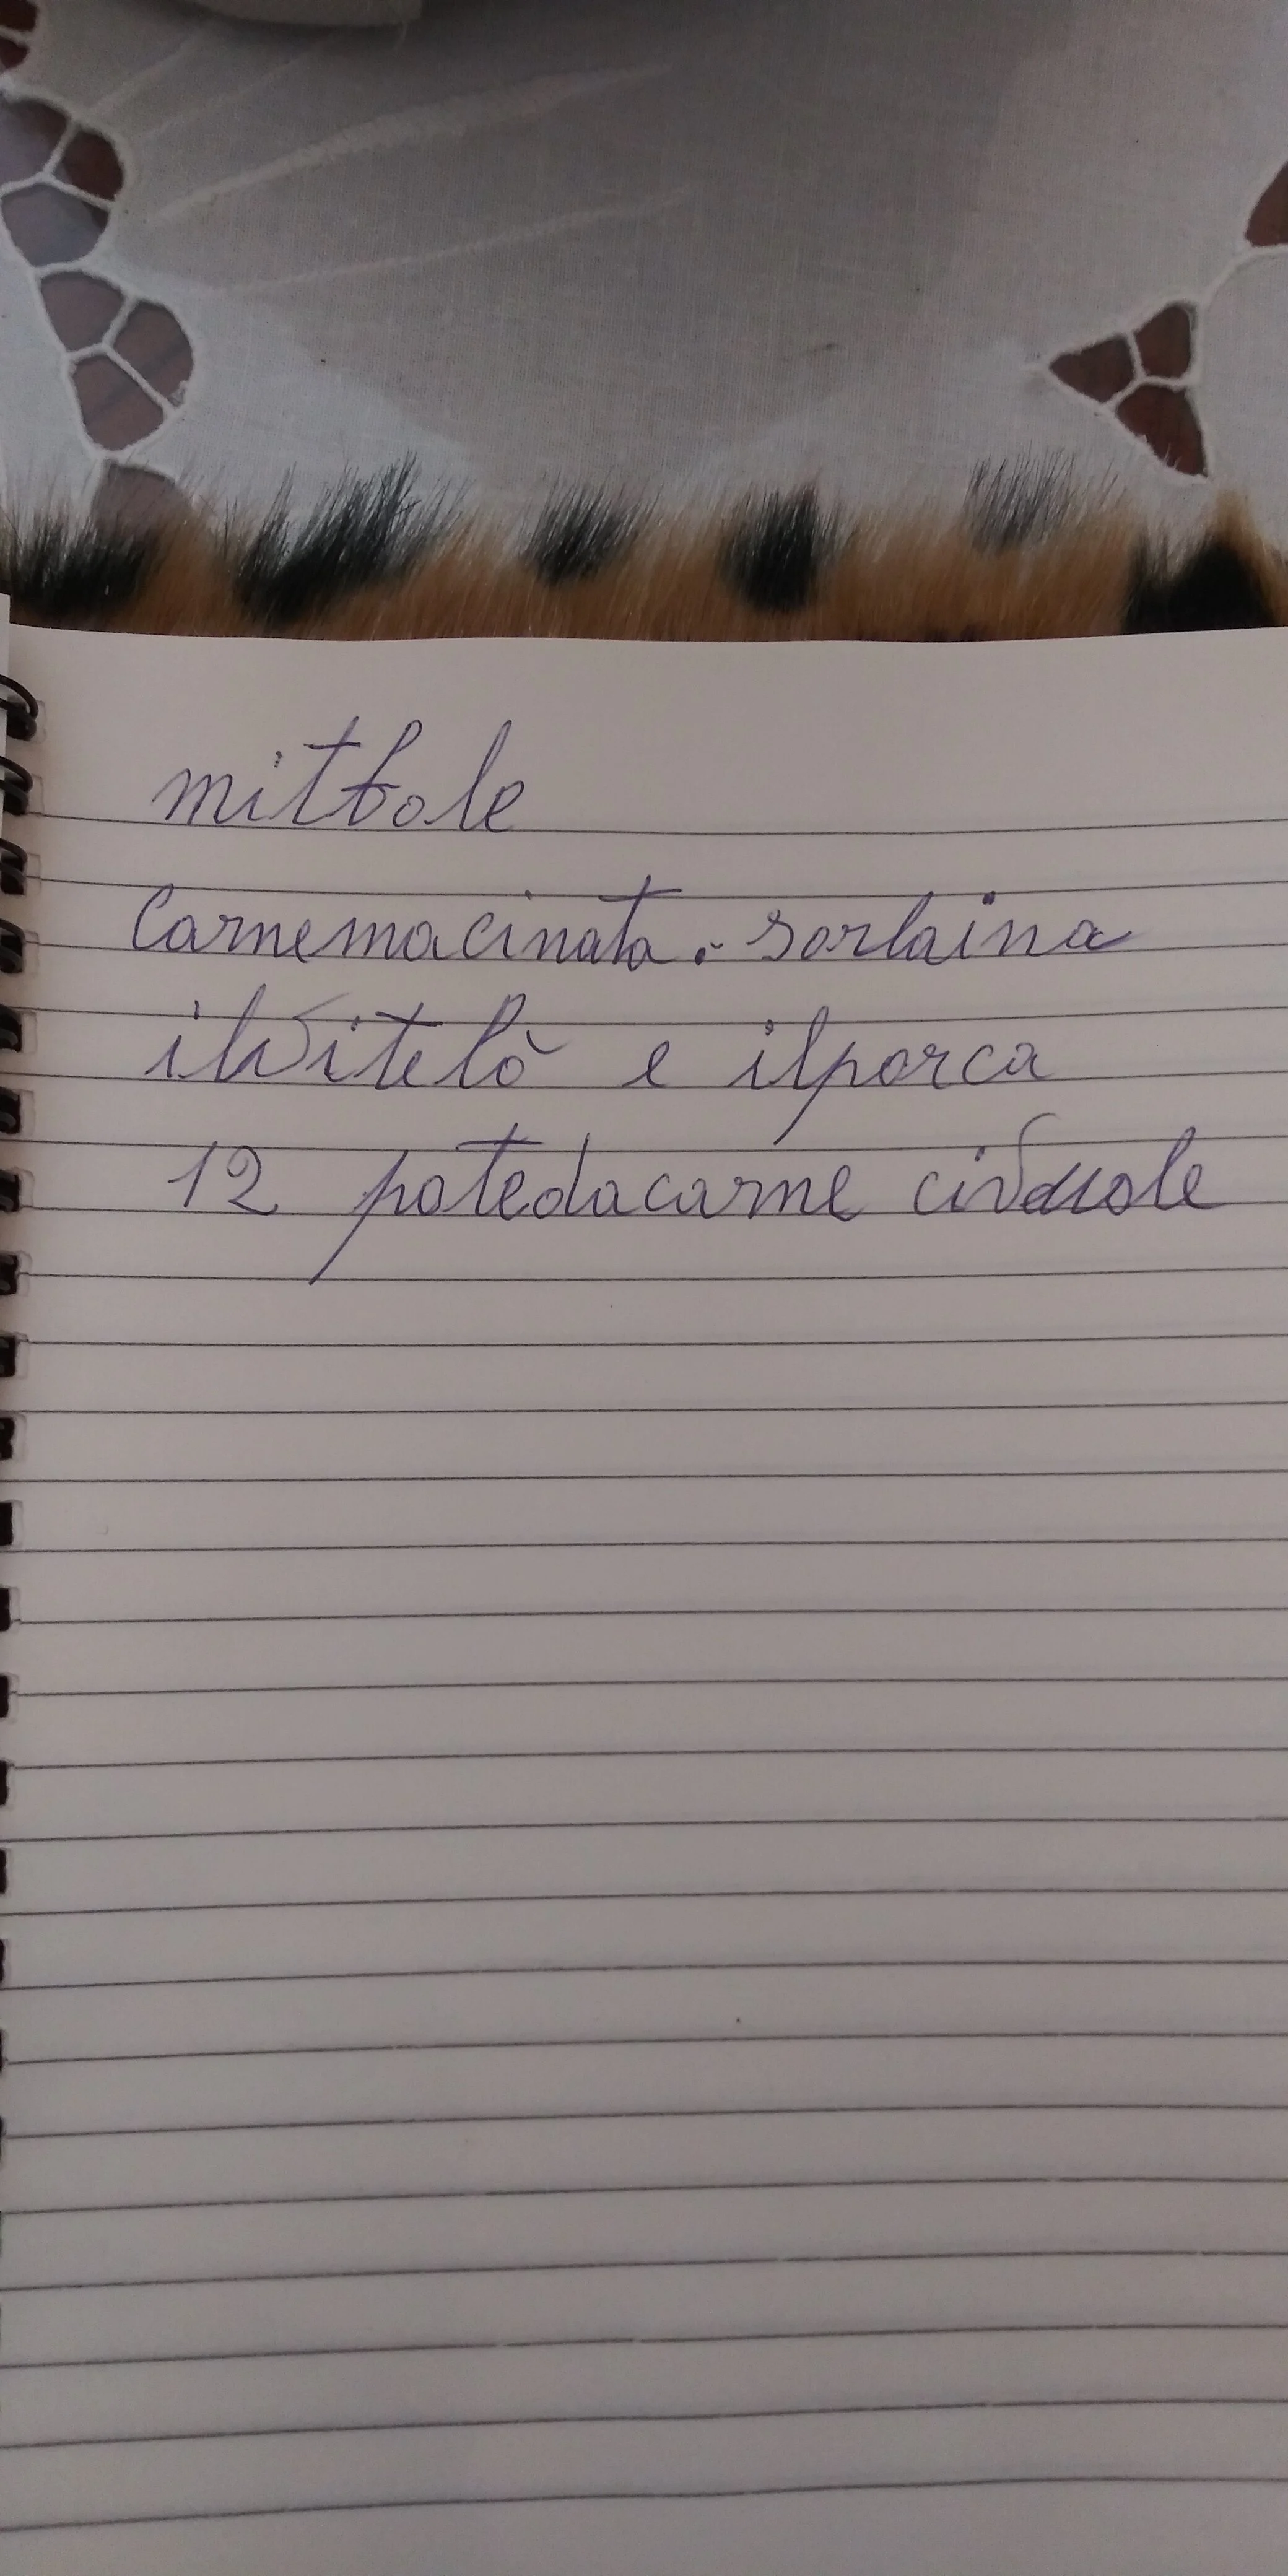 mitbole
Carnemacinata. sorlaina
ilvitelò e ilporca
12 potedacarne civuole